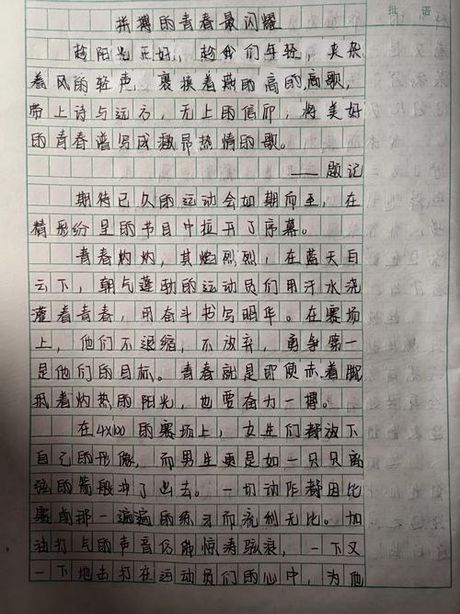 批 语
拼搏的青春最闪耀
趁阳光正好，趁我们年轻，夹杂
着风的轻声，裹挟着燕的高的高歌，
带上诗与远方，无上的信仰，将美好
的青春谱写成激昂热情的歌。
——题记
期待已久的运动会如期而至，在
精彩纷呈的节目中拉开了序幕。
青春灼灼，其焰烈烈，在蓝天白
云下，朝气蓬勃的运动员们用汗水浇
灌着青春，用奋斗书写明华。在赛场
上，他们不退缩，不放弃，勇争第一
是他们的目标。青春就是即便赤着脚
抵着灼热的阳光，也要奋力一搏。
在4×100的赛场上，女生们都放下
自己的形像，而男生更是如一只只离
弦的箭般冲了出去。一切动作都因比
赛前那一遍遍的练习而流利无比。加
油打气的声音仿那惊涛骇浪，一下又
一下地击打在运动员们的心中，为他